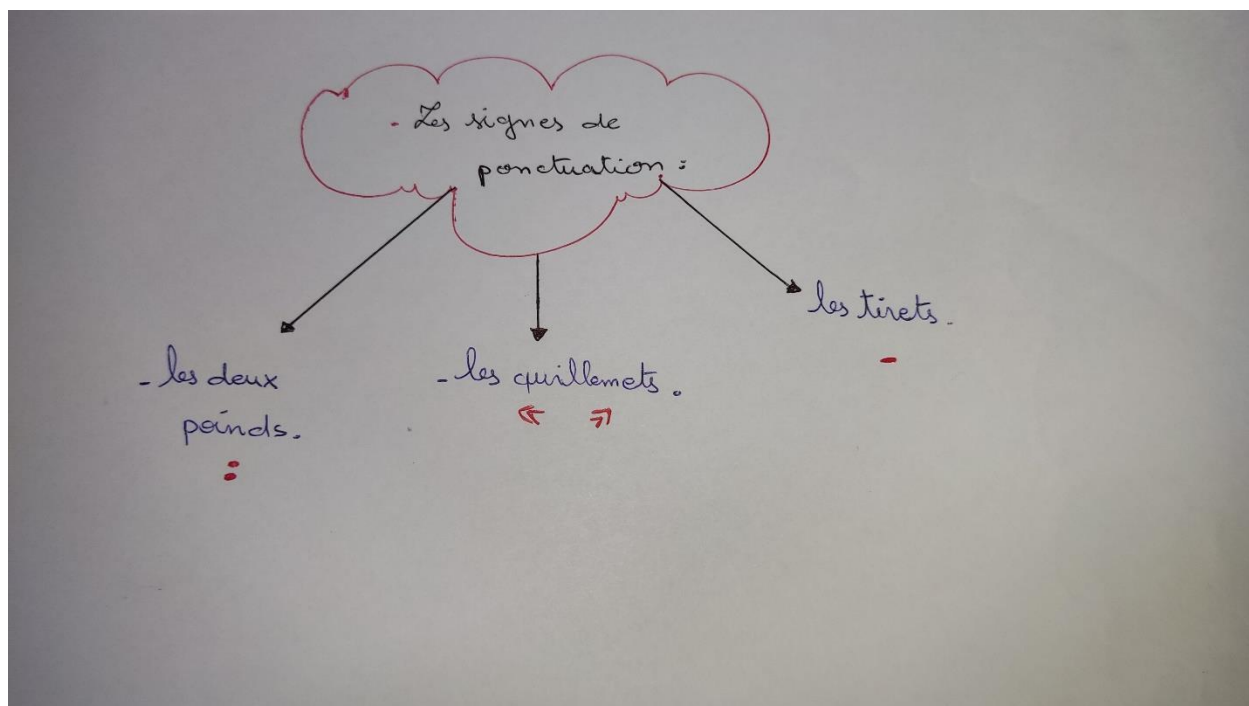 - Les signes de
ponctuation :
- les deux
poinds.
:
- les quillemets.
« »
les tirets.
-